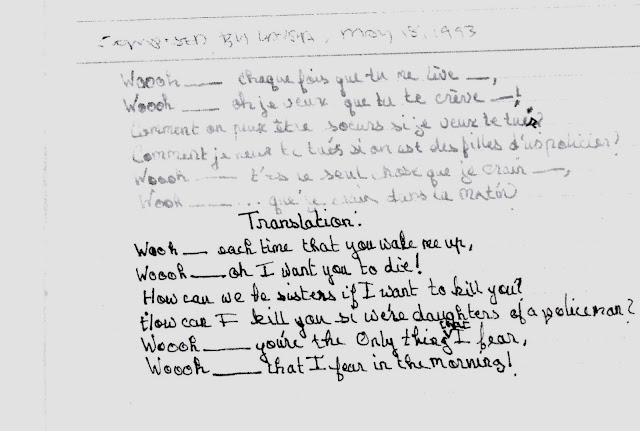 COMPOSED BY MAY 15, 1993
Woooh — chaque fois que tu me lève —,
Woooh — oh je veux que tu te crève —!
Comment on peux être soeurs si je veux te tués?
Comment je peux te tués si on est des filles d'un policier?
Woooh — t'es le seul chose que je crain —,
Wooh — ... que je crain dans la matin
Translation:
Wooh — each time that you wake me up,
Woooh — oh I want you to die!
How can we be sisters if I want to kill you?
How can I kill you si we're daughters of a policeman?
Woooh — you're the Only thing that I fear,
Woooh — that I fear in the morning!